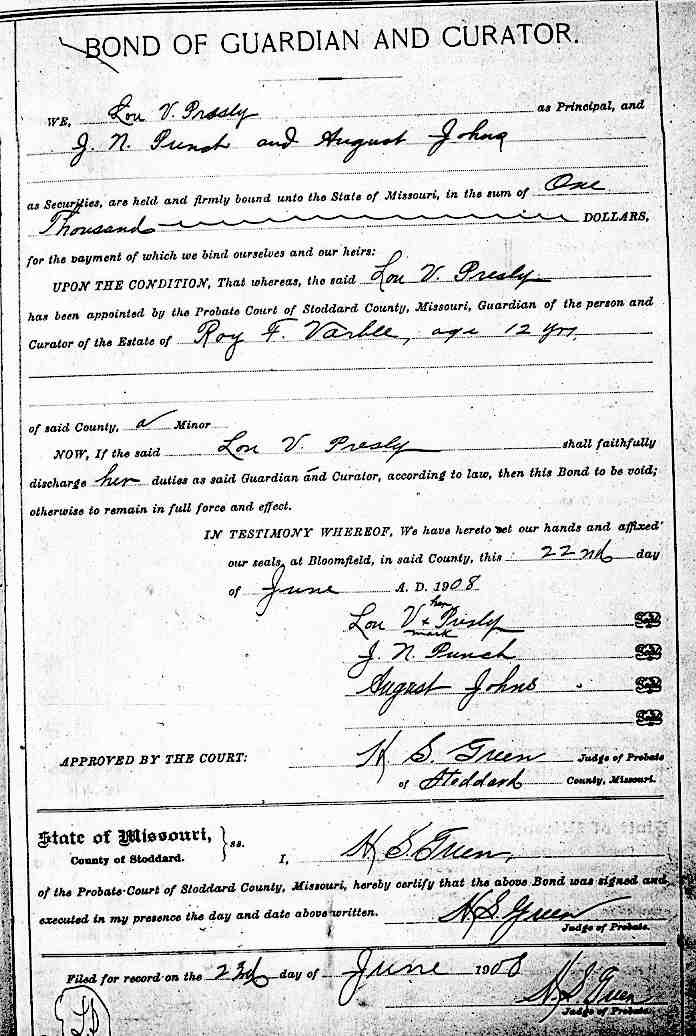 BOND OF GUARDIAN AND CURATOR.
WE, Lou V. Presly as Principal, and
J. N. Punch and August Johns
as Securities, are held and firmly bound unto the State of Missouri, in the sum of One
Thousand DOLLARS,
for the payment of which we bind ourselves and our heirs:
UPON THE CONDITION, That whereas, the said Lou V. Presly
has been appointed by the Probate Court of Stoddard County, Missouri, Guardian of the person and
Curator of the Estate of Roy F. Varble, age 12 yrs.
of said County, a Minor
NOW, If the said Lou V. Presly shall faithfully
discharge her duties as said Guardian and Curator, according to law, then this Bond to be void;
otherwise to remain in full force and effect.
IN TESTIMONY WHEREOF, We have hereto set our hands and affixed
our seals, at Bloomfield, in said County, this 22nd day
of June A. D. 1908
her
Lou V + Presly Seal
mark
J. N. Punch Seal
August Johns Seal
Seal
APPROVED BY THE COURT: H S. Green Judge of Probate
of Stoddard County, Missouri.
State of Missouri, } ss.
County of Stoddard. I, H S. Green,
of the Probate Court of Stoddard County, Missouri, hereby certify that the above Bond was signed and
executed in my presence the day and date above written. H S. Green
Judge of Probate.
Filed for record on the 23rd day of June 1908
H. S. Green
Judge of Probate.